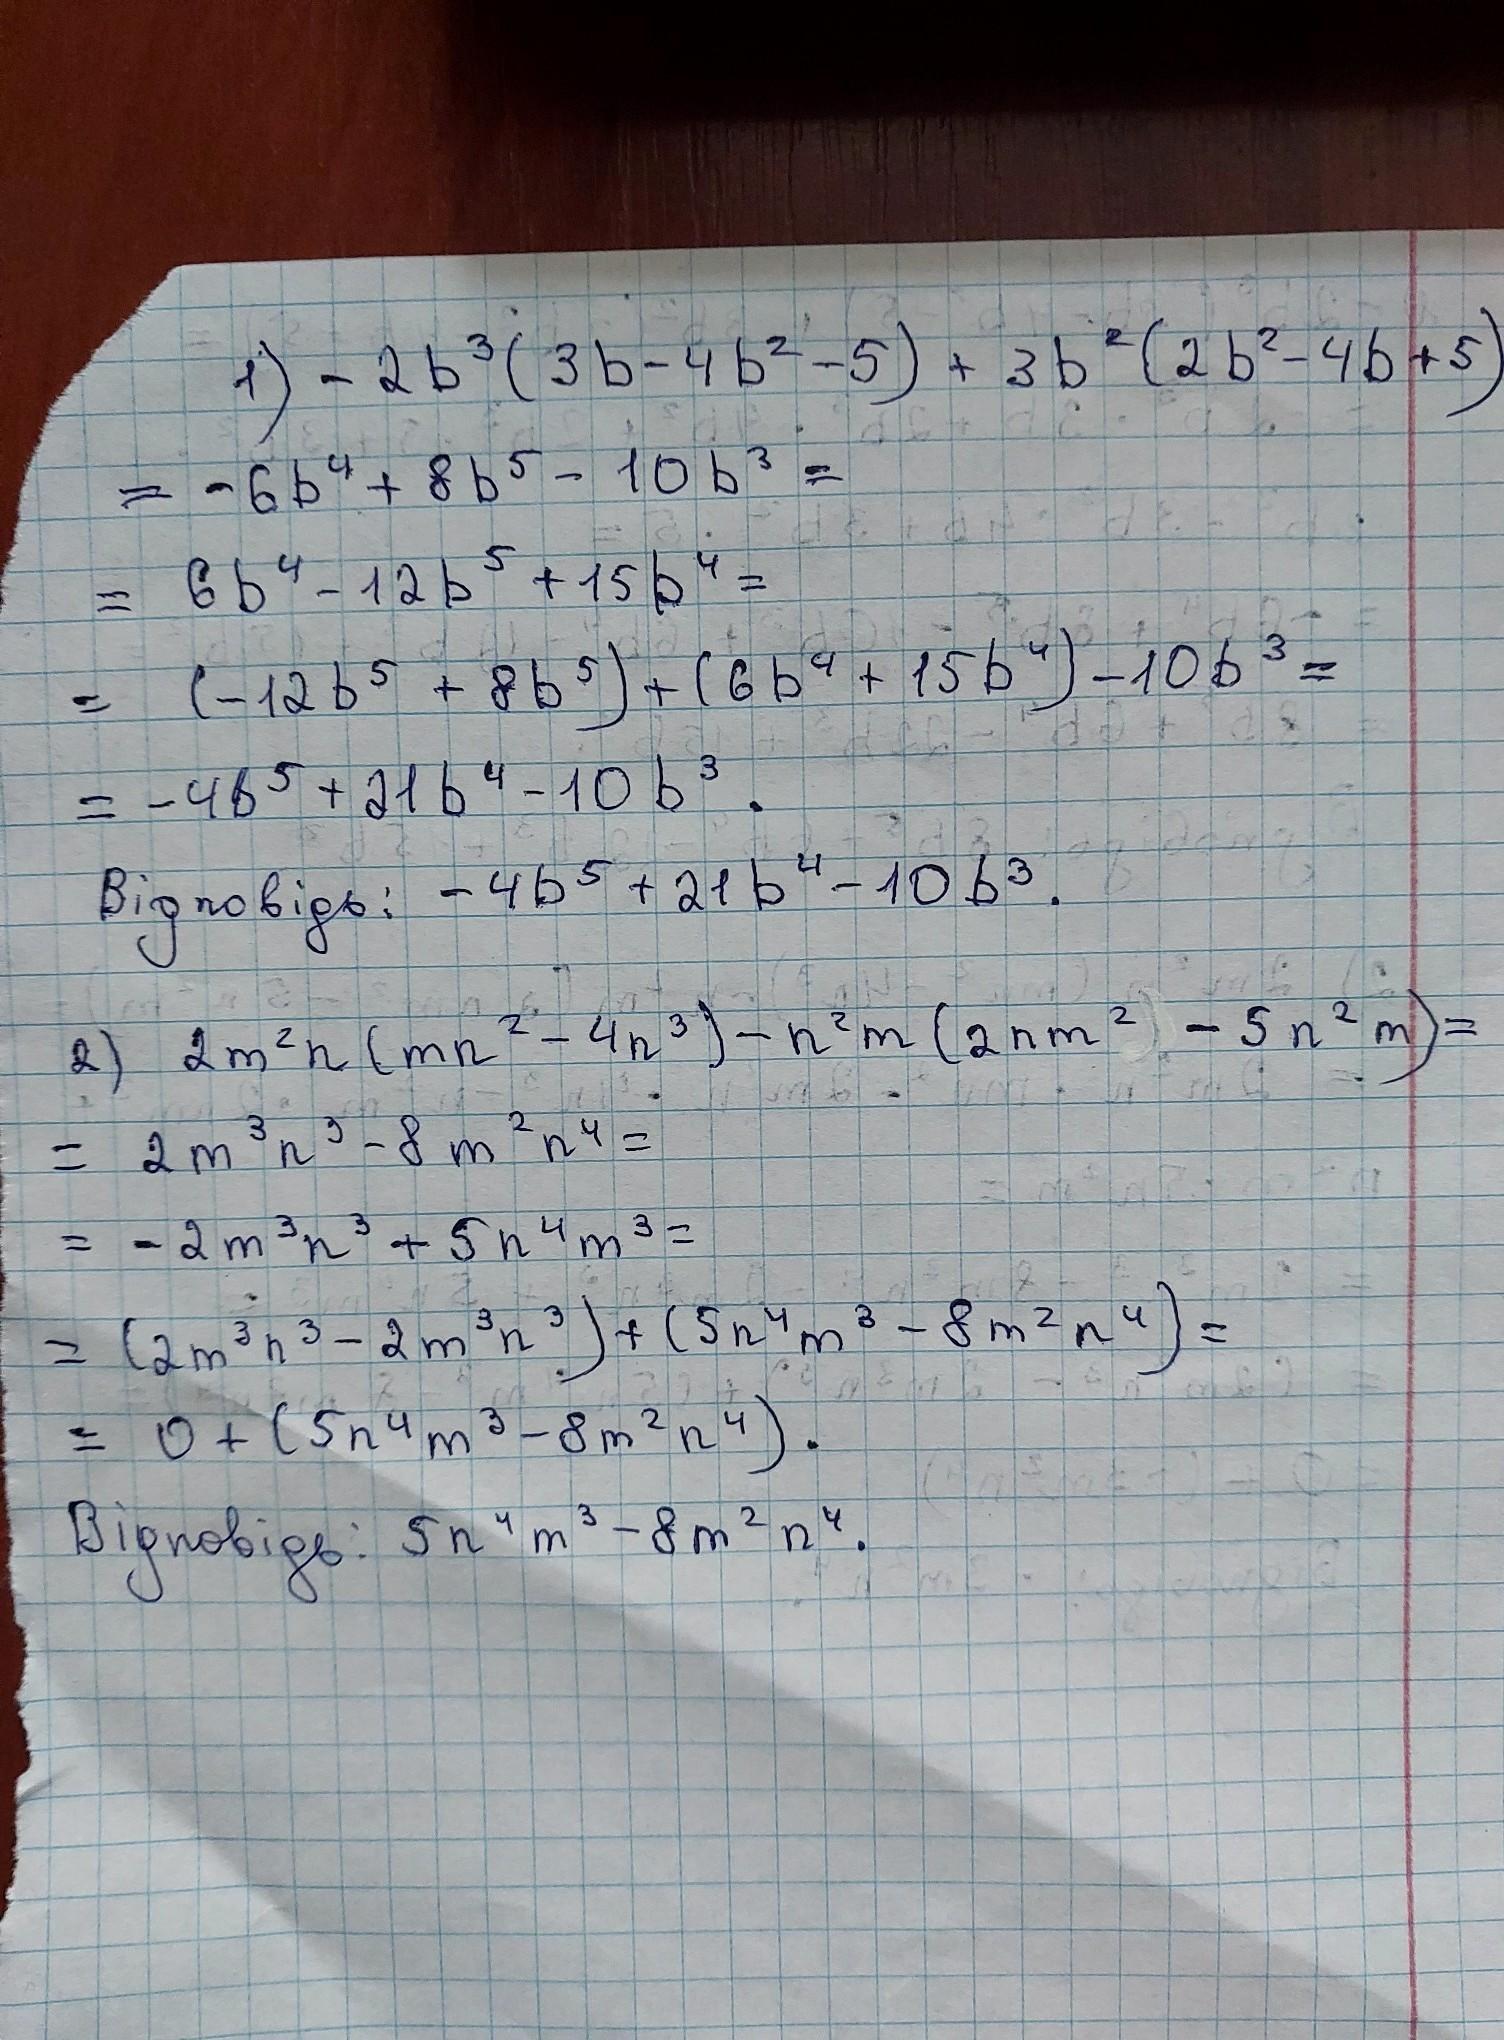 1) - 2b³(3b - 4b² - 5) + 3b²(2b² - 4b + 5)
= - 6b⁴ + 8b⁵ - 10b³ =
= 6b⁴ - 12b⁵ + 15b⁴ =
= (-12b⁵ + 8b⁵) + (6b⁴ + 15b⁴) - 10b³ =
= -4b⁵ + 21b⁴ - 10b³.
Відповідь: -4b⁵ + 21b⁴ - 10b³.
2) 2m²n(mn² - 4n³) - n²m(2nm² - 5n²m) =
= 2m³n³ - 8m²n⁴ =
= - 2m³n³ + 5n⁴m³ =
= (2m³n³ - 2m³n³) + (5n⁴m³ - 8m²n⁴) =
= 0 + (5n⁴m³ - 8m²n⁴).
Відповідь: 5n⁴m³ - 8m²n⁴.